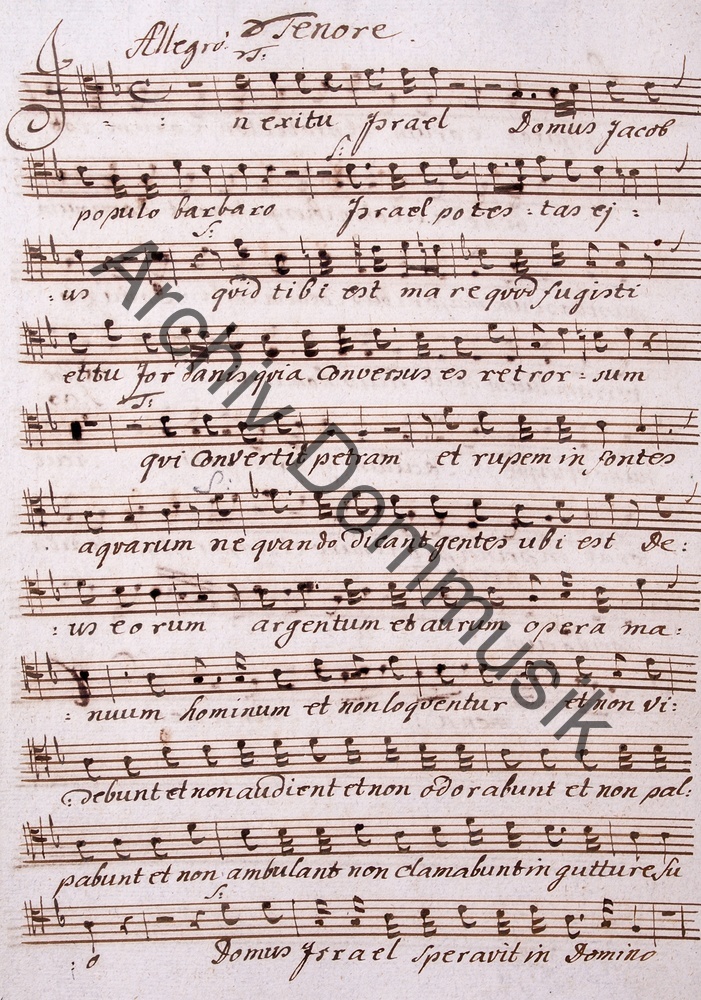 Tenore
Allegro. T:
In exitu Israel Domus Jacob
S:
populo barbaro Israel potes: tas ej:
S:
: us quid tibi est mare quod fugisti
et tu Jordanis quia Conversus es retror: sum
T:
qui Convertit petram et rupem in fontes
S:
aquarum ne quando dicant gentes ubi est De:
: us eorum argentum et aurum opera ma:
: nuum hominum et non loquentur et non vi:
: debunt et non audient et non odorabunt et non pal:
pabunt et non ambulant non clamabunt in gutture su
S:
: o Domus Israel speravit in Domino
Archiv Dommusik